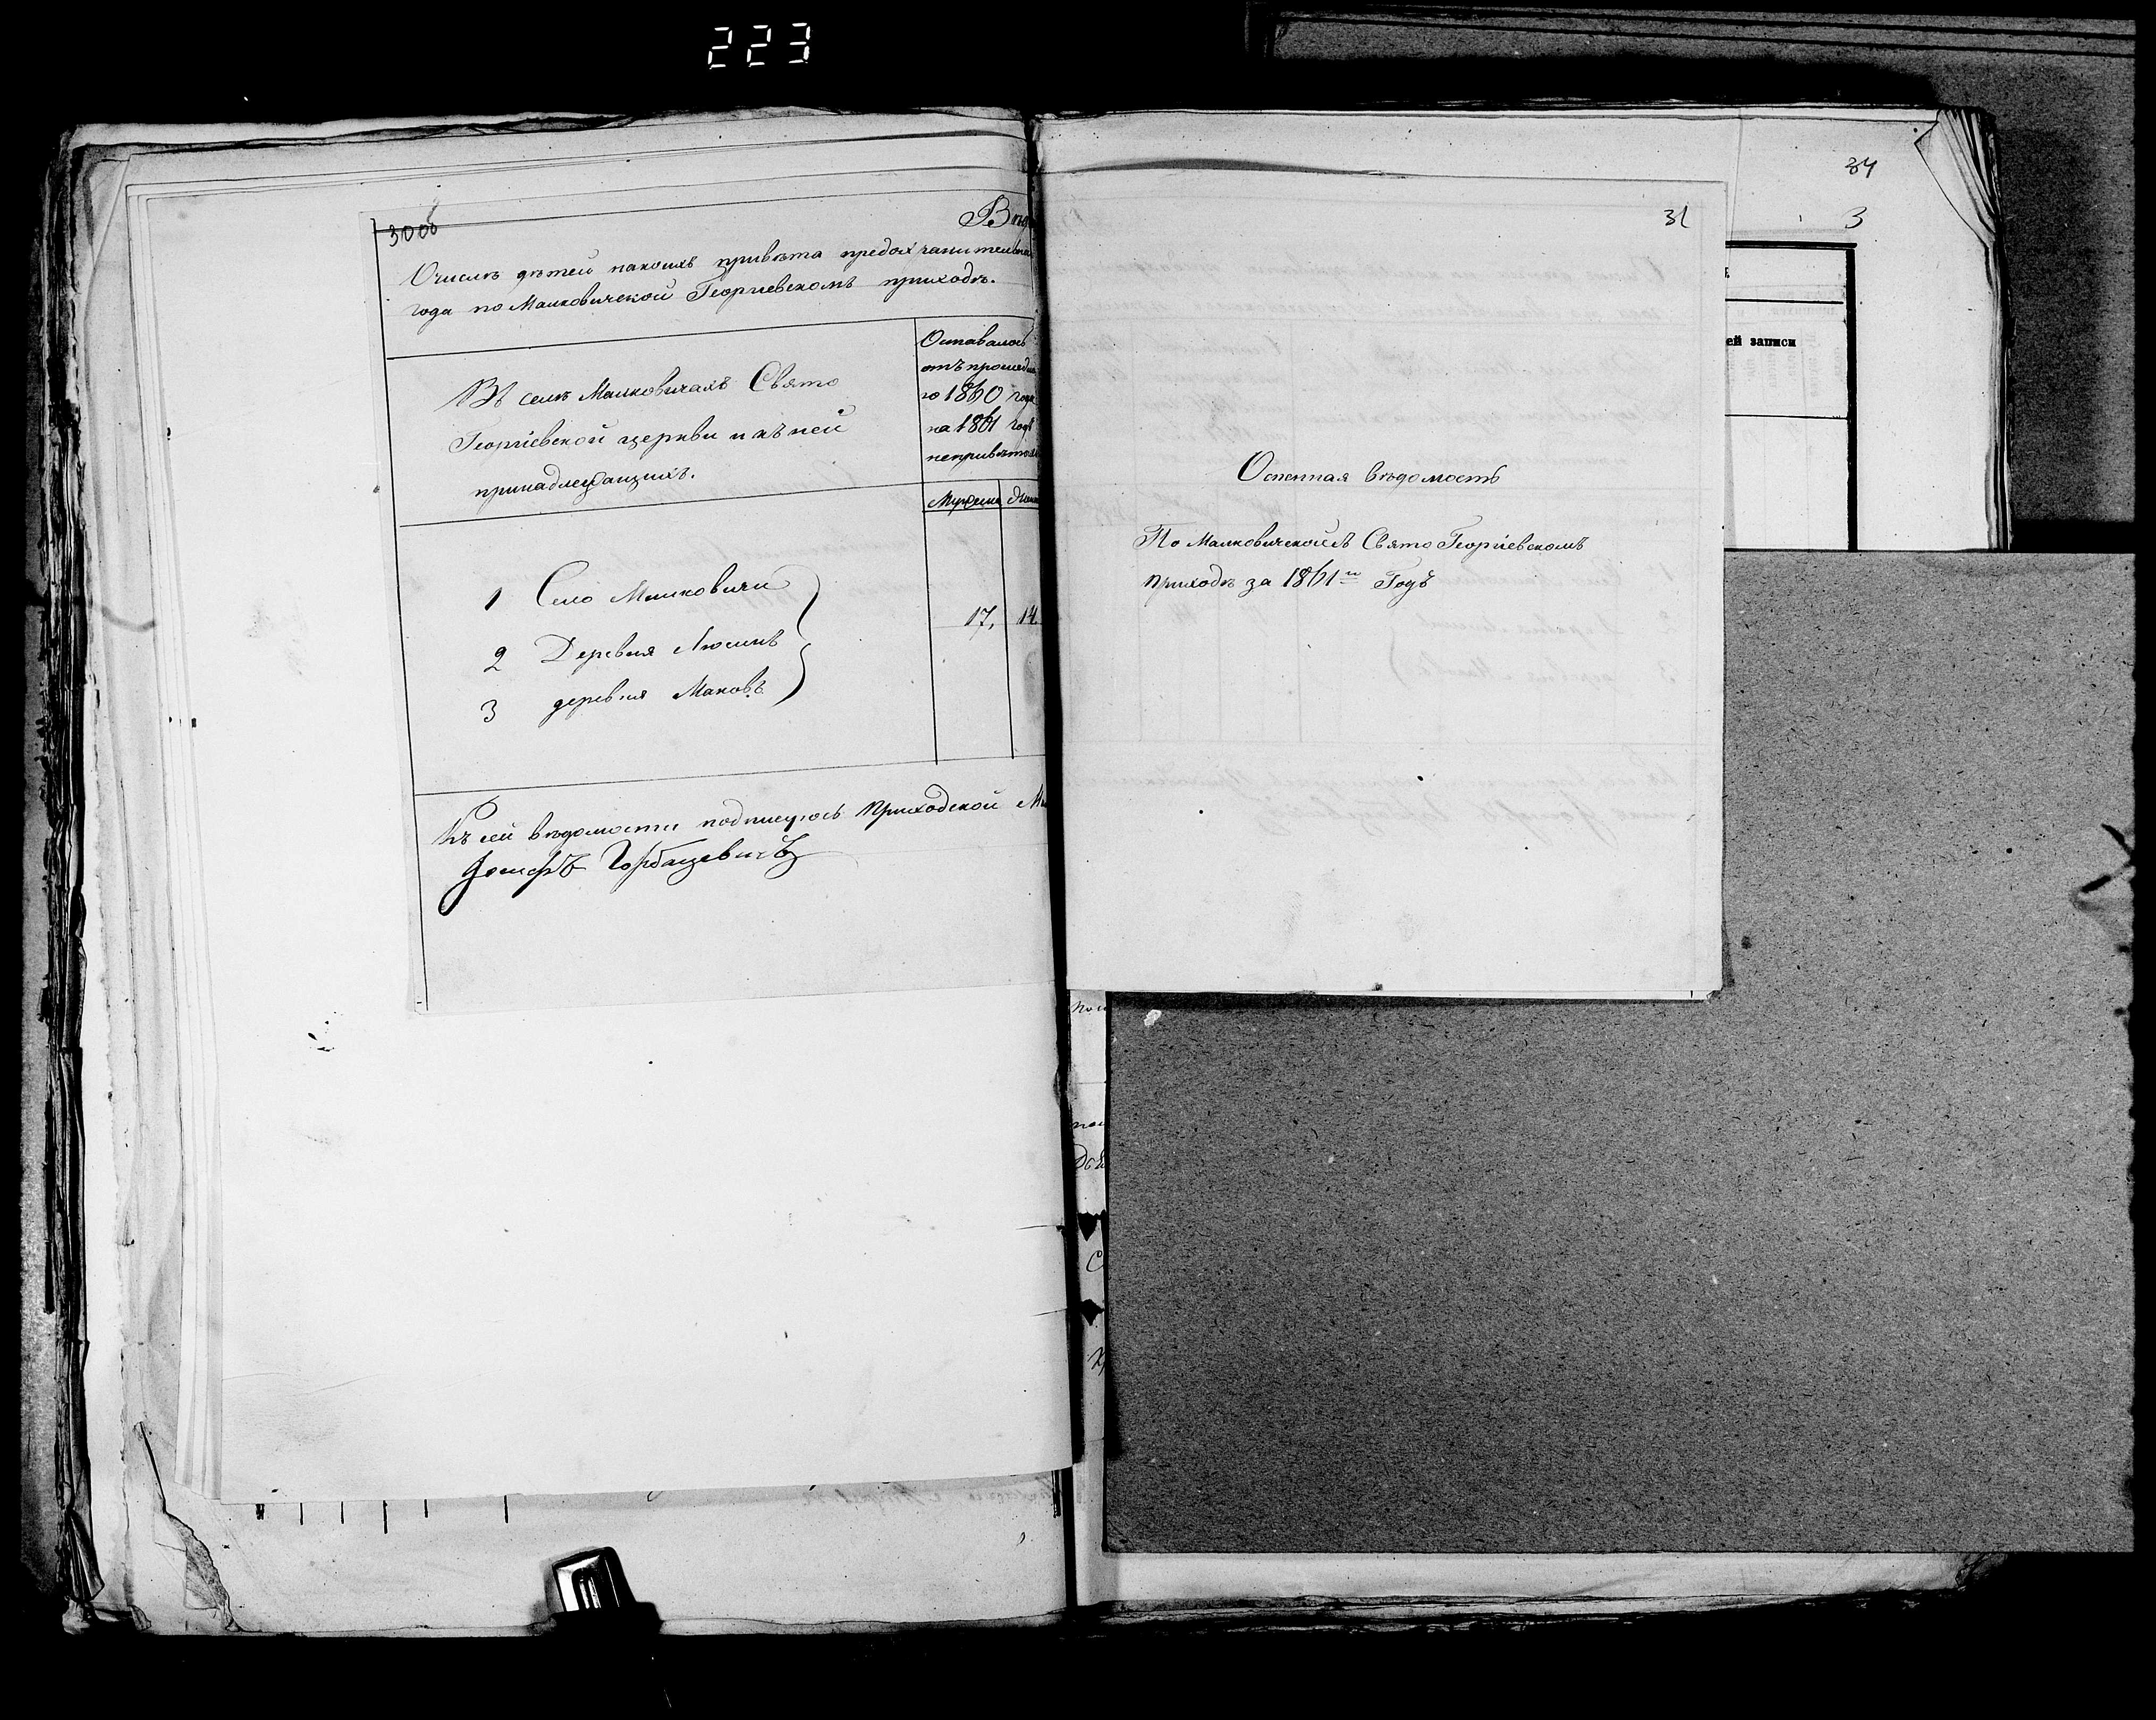 223
30 об
Вѣд
О числѣ дѣтей на коихъ привита предохранительна
года по Малковической Георгиевскомъ приходѣ.
Въ селѣ Малковичахъ Свято
Георгіевской церкви и къ ней
принадлежащихъ.
Оставалось
отъ прошед
го 1860 года
на 1861 годъ
непривитыхъ
Мужеска
Женс
1 Село Малковичи
2 Деревня Люсинъ
3 деревня Маковъ
17, 14.
Къ сей вѣдомости подписуюсь Приходской
Іосифъ Горбацевичъ
31
Оспенная вѣдомость
По Малковической Свято Георгіевскомъ
приходѣ за 1861й Годъ
34
3
ей записи